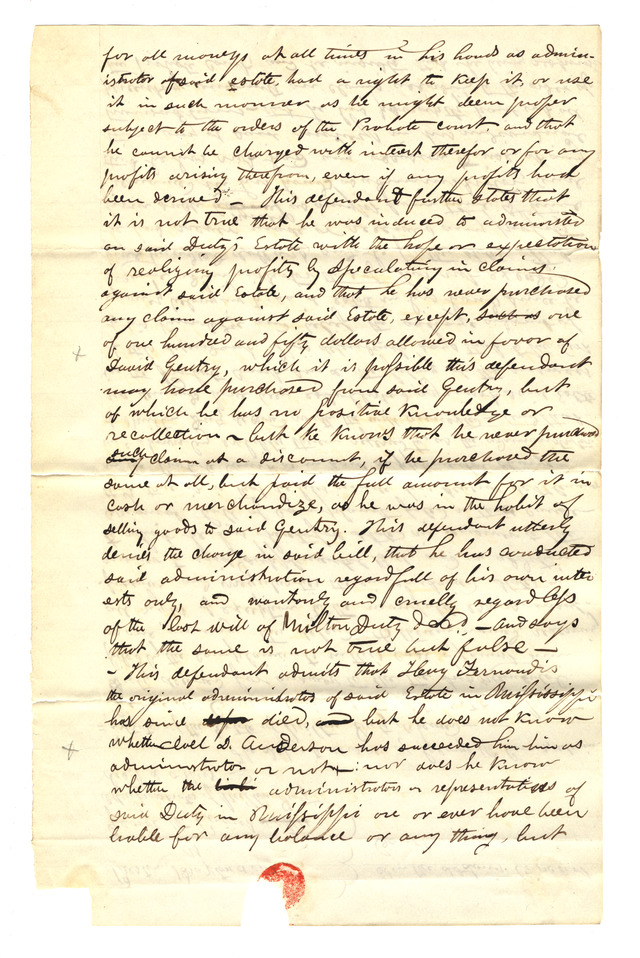 for all moneys at all times in his hands as admin-
istrator of said estate, had a right to keep it, or use
it in such manner as he might deem proper
subject to the orders of the Probate court, and that
he cannot be charged with interest therefor or for any
profits arising therefrom, even if any profits had
been derived - This defendant further states that
it is not true that he was induced to administer
on said Duty's Estate with the hope or expectation
of realizing profits by speculating in claims
against said Estate, and that he has never purchased
any claim against said Estate, except such as one
of one hundred and fifty dollars allowed in favor of
David Gentry, which it is possible this defendant
may have purchased from said Gentry, but
of which he has no positive knowledge or
recollection - but he knows that he never purchased
such claim at a discount, if he purchased the
same at all, but paid the full amount for it in
cash or merchandize, as he was in the habit of
selling goods to said Gentry. This defendant utterly
denies the charge in said bill, that he has conducted
said administration regardfull of his own inter
ests only, and wantonly and cruelly regardless
of the last will of Milton Duty decd - and says
that the same is not true but false -
- This defendant admits that Henry Fernandis
the original administrator of said Estate in Mississippi
has since died, and but he does not know
whether Joel D. Anderson has succeeded him him as
administrator or not: nor does he know
whether the administrators or representatives of
said Duty in Mississippi are or ever have been
liable for any balance or any thing, but